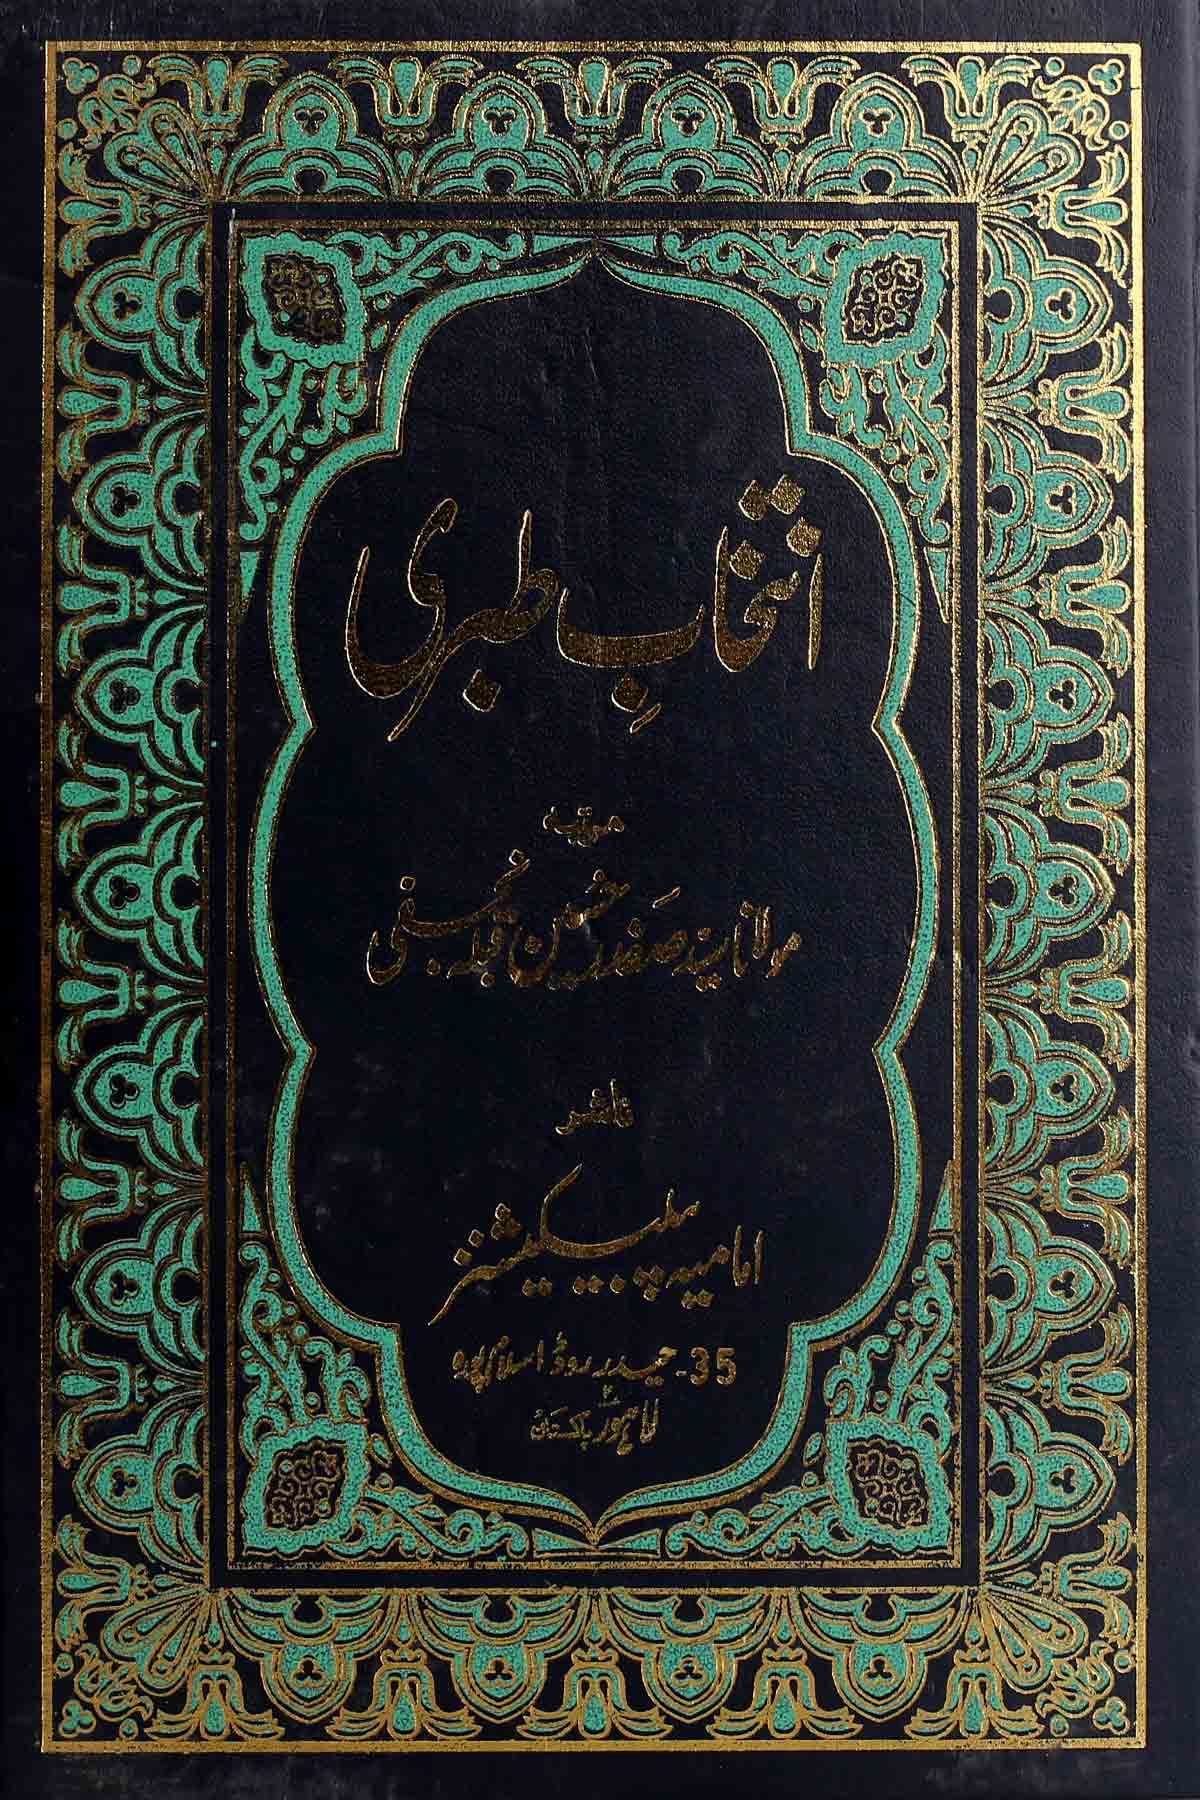 انتخابِ طبری
مرتبہ
مولانا سید صفدر حسین قبلہ نجفی
ناشر
امامیہ پبلیکیشنز
35- حیدر روڈ اسلامپورہ
لاہور پاکستان